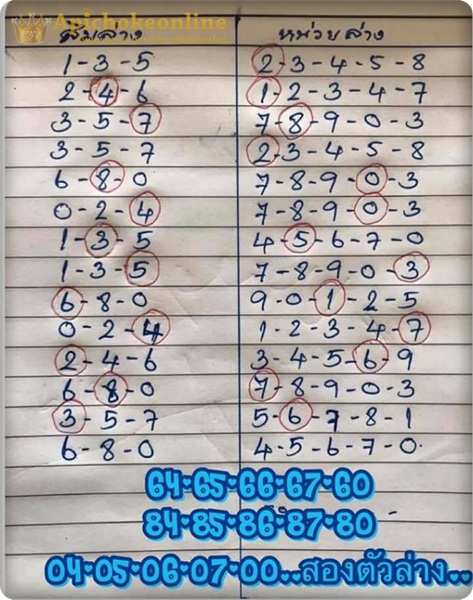 Apichokeonline
สิบล่าง หน่วยล่าง
1-3-5 2-3-4-5-8
2-4-6 1-2-3-4-7
3-5-7 7-8-9-0-3
3-5-7 2-3-4-5-8
6-8-0 7-8-9-0-3
0-2-4 7-8-9-0-3
1-3-5 4-5-6-7-0
1-3-5 7-8-9-0-3
6-8-0 9-0-1-2-5
0-2-4 1-2-3-4-7
2-4-6 3-4-5-6-9
6-8-0 7-8-9-0-3
3-5-7 5-6-7-8-1
6-8-0 4-5-6-7-0.
64•65•66•67•60
84•85•86•87•80
04•05•06•07•00..สองตัวล่าง..